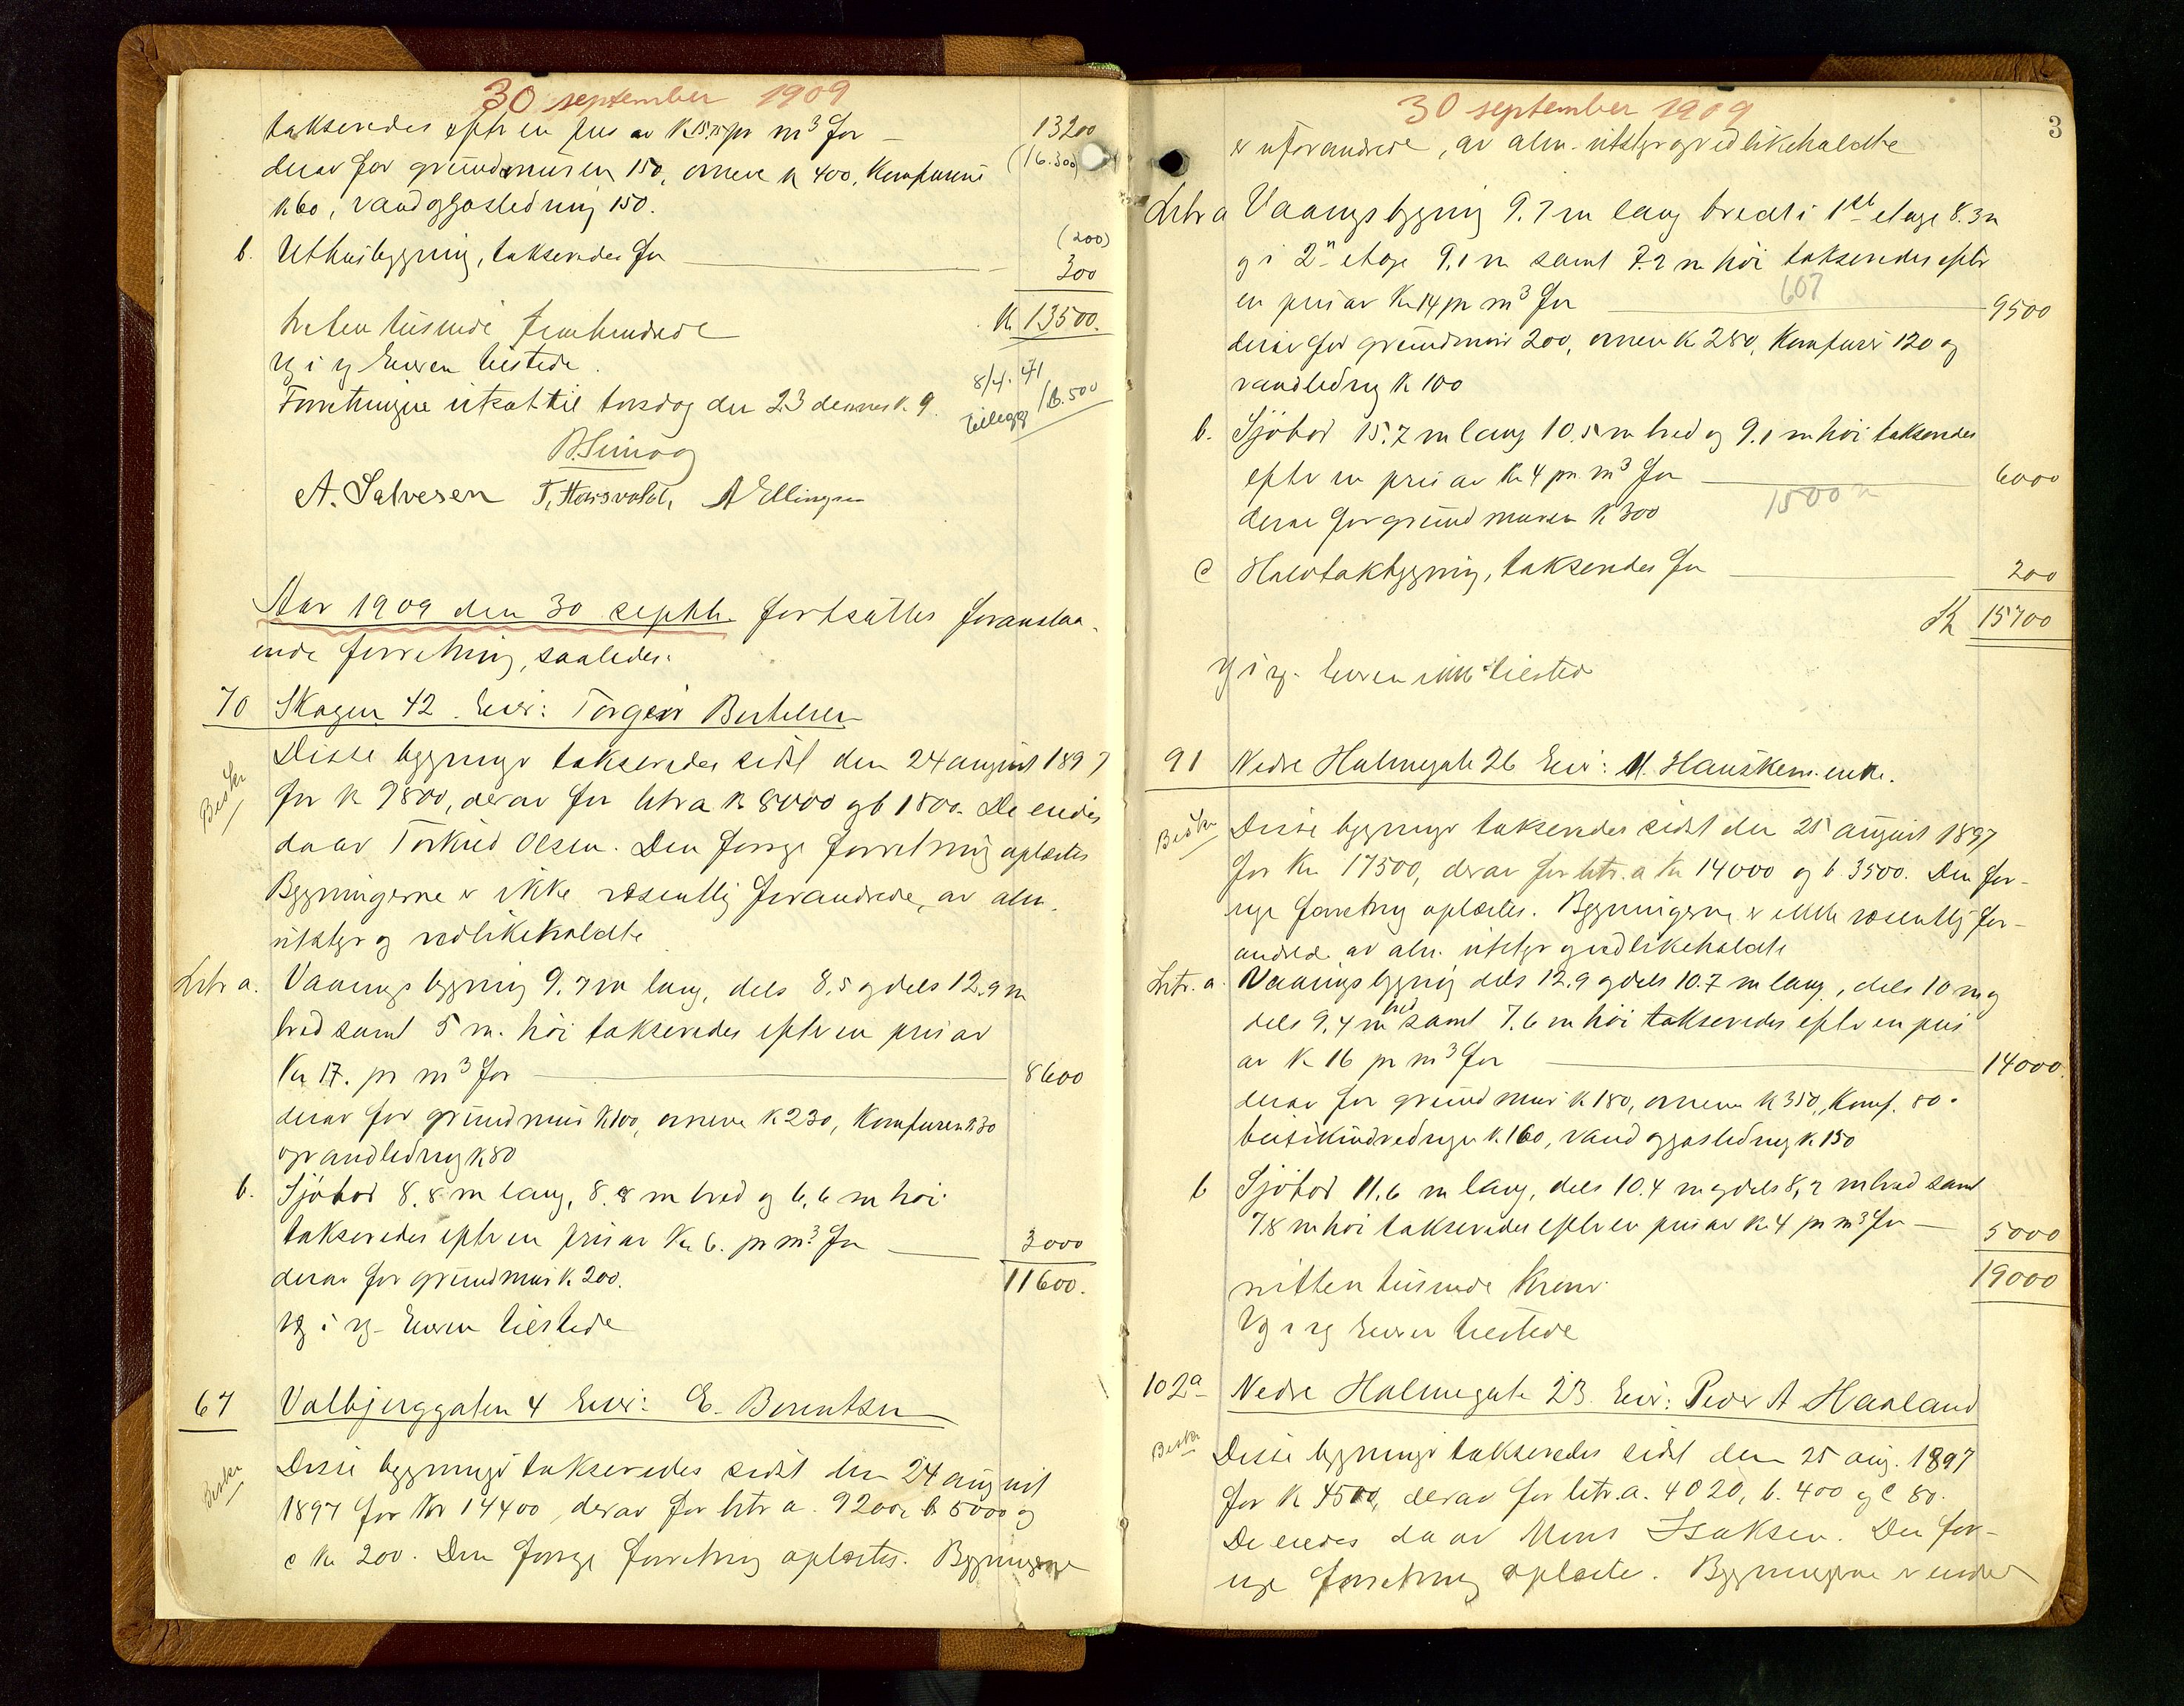 30 september 1909
takseredes efter en pris av K 15.75 pr m³ for — 13200
derav for grundmuren 150, ovnene K 400, Komfurene (16.300)
K 60, vand og gasledning 150.
b. Uthusbygning, takseredes for — (200)
300
tretten tusinde femhundrede K 13500.
Vg i vg Eieren tilstede.
8/4. 41
Forretningen utsat til torsdag den 23 dennes k. 9.
tillegg 16.500
A. Salvesen T. Hoisvoldt, A Ellingsen
Aar 1909 den 30 septbr. fortsattes foranstaa-
ende forretning, saaledes:
70 Skagen 42. Eier: Torgeir Bertelsen
Beskr
Disse bygninger takseredes sidst den 24 august 1897
for K 9800, derav for litr a K 8000 og b 1800. De eiedes
da av Torkild Olsen. Den forrige forretning oplæstes
Bygningerne er ikke væsentlig forandrede, av alm.
utstyr og vedlikeholdte
Litr a. Vaaningsbygning 9.7 m lang, dels 8,5 og dels 12.9 m
bred samt 5 m. høi takseredes efter en pris av
Kr 17. pr m³ for — 8600
derav for grundmur K 100, ovnene K 230, Komfuren K 30
og vandledning K 80
b. Sjøbod 8.8 m lang, 8.8 m bred og 6,6 m høi
takseredes efter en pris av Kr 6. pr m³ for — 3000
derav for grundmur K 200. 11600.
Vg i vg- Eieren tilstede
67 Valbjerggaten 4 Eier: E. Berentsen
Beskr
Disse bygninger takseredes sidst den 24 august
1897 for Kr 14400, derav for litr a. 9200, b 5000 og
c Kr 200. Den forrige forretning oplæstes. Bygningerne
30 september 1909
3
er uforandrede, av alm. utstyr og vedlikeholdte
Litr a Vaaningsbygning 9.7 m lang bredt i 1ste etage 8.3 m
og i 2n etage 9,1 m samt 7.2 m høi takseredes efter
en pris av Kr 14 pr m³ for — 607 9500
derav for grundmur 200, ovnene K 280, Komfurer 120 og
vandledning K 100
b. Sjøbod 15.7 m lang 10.5 m bred og 9.1 m høi takseredes
efter en pris av Kr 4 pr. m³ for — 6000
derav for grundmuren K 300 1500
c Halvtakbygning, takseredes for — 200
K 15700
Vg i vg. Eieren ikke tilstede
91 Nedre Holmegate 26 Eier: M. Hauskens enke.
Beskr
Disse bygninger takseredes sidst den 25 august 1897
for Kr 17500, derav for litr. a Kr 14000 og b 3500. Den for-
rige forretning oplæstes. Bygningerne er ikke væsentlig for-
andred. av alm. utstyr og vedlikeholdte
Litr. a. Vaaningsbygning dels 12.9 og dels 10.7 m lang, dels 10 m og
dels 9,4 m bred samt 7.6 m høi takseredes efter en pris
av K 16 pr m³ for — 14000.
derav for grundmur K 180, ovnene K 350, Komf. 80.
K. 160, vand og gasledning K 150
b Sjøbod 11.6 m lang, dels 10.4 m og dels 8,2 m bred samt
7.8 m høi takseredes efter en pris av K 4 pr m³ for — 5000
nitten tusinde Kroner 19000
Vg i vg Eieren tilstede
102a Nedre Holmegate 23. Eier: Peder A Haaland
Beskr
Disse bygninger takseredes sidst den 25 aug. 1897
for K 4500, derav for litr. a. 4020, b. 400 og c 80.
De eiedes da av Mons Isaksen. Den for-
rige forretning oplæste. Bygningerne er under